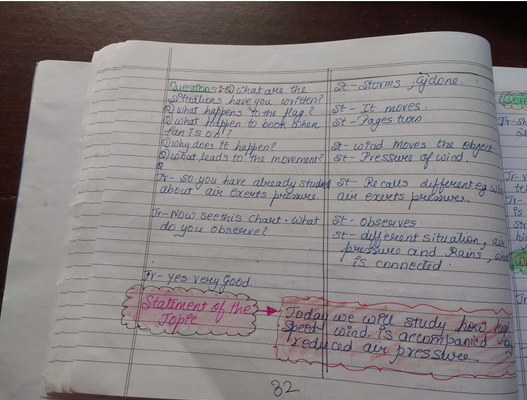 Questions :- Q) what are the
situations have you written?
Q) what happens to the flag?
Q) what happen to book when
fan is on?
Q) why does it happen?
Q) what leads to the movement?
Tr- so you have already studied
about air exerts pressure.
Tr- Now see this chart. What
do you observe?
Tr- Yes very Good.
Statement of the
Topic
St - Storms, Cyclone.
St - It moves.
St - Pages turn
St - wind moves the object
St - Pressure of wind.
St - Recalls different eg
air exerts pressure.
St - observes.
St - different situation, air
pressure and Rains,
is connected.
Today we will study how high
speed wind is accompanied by
reduced air pressure.
32